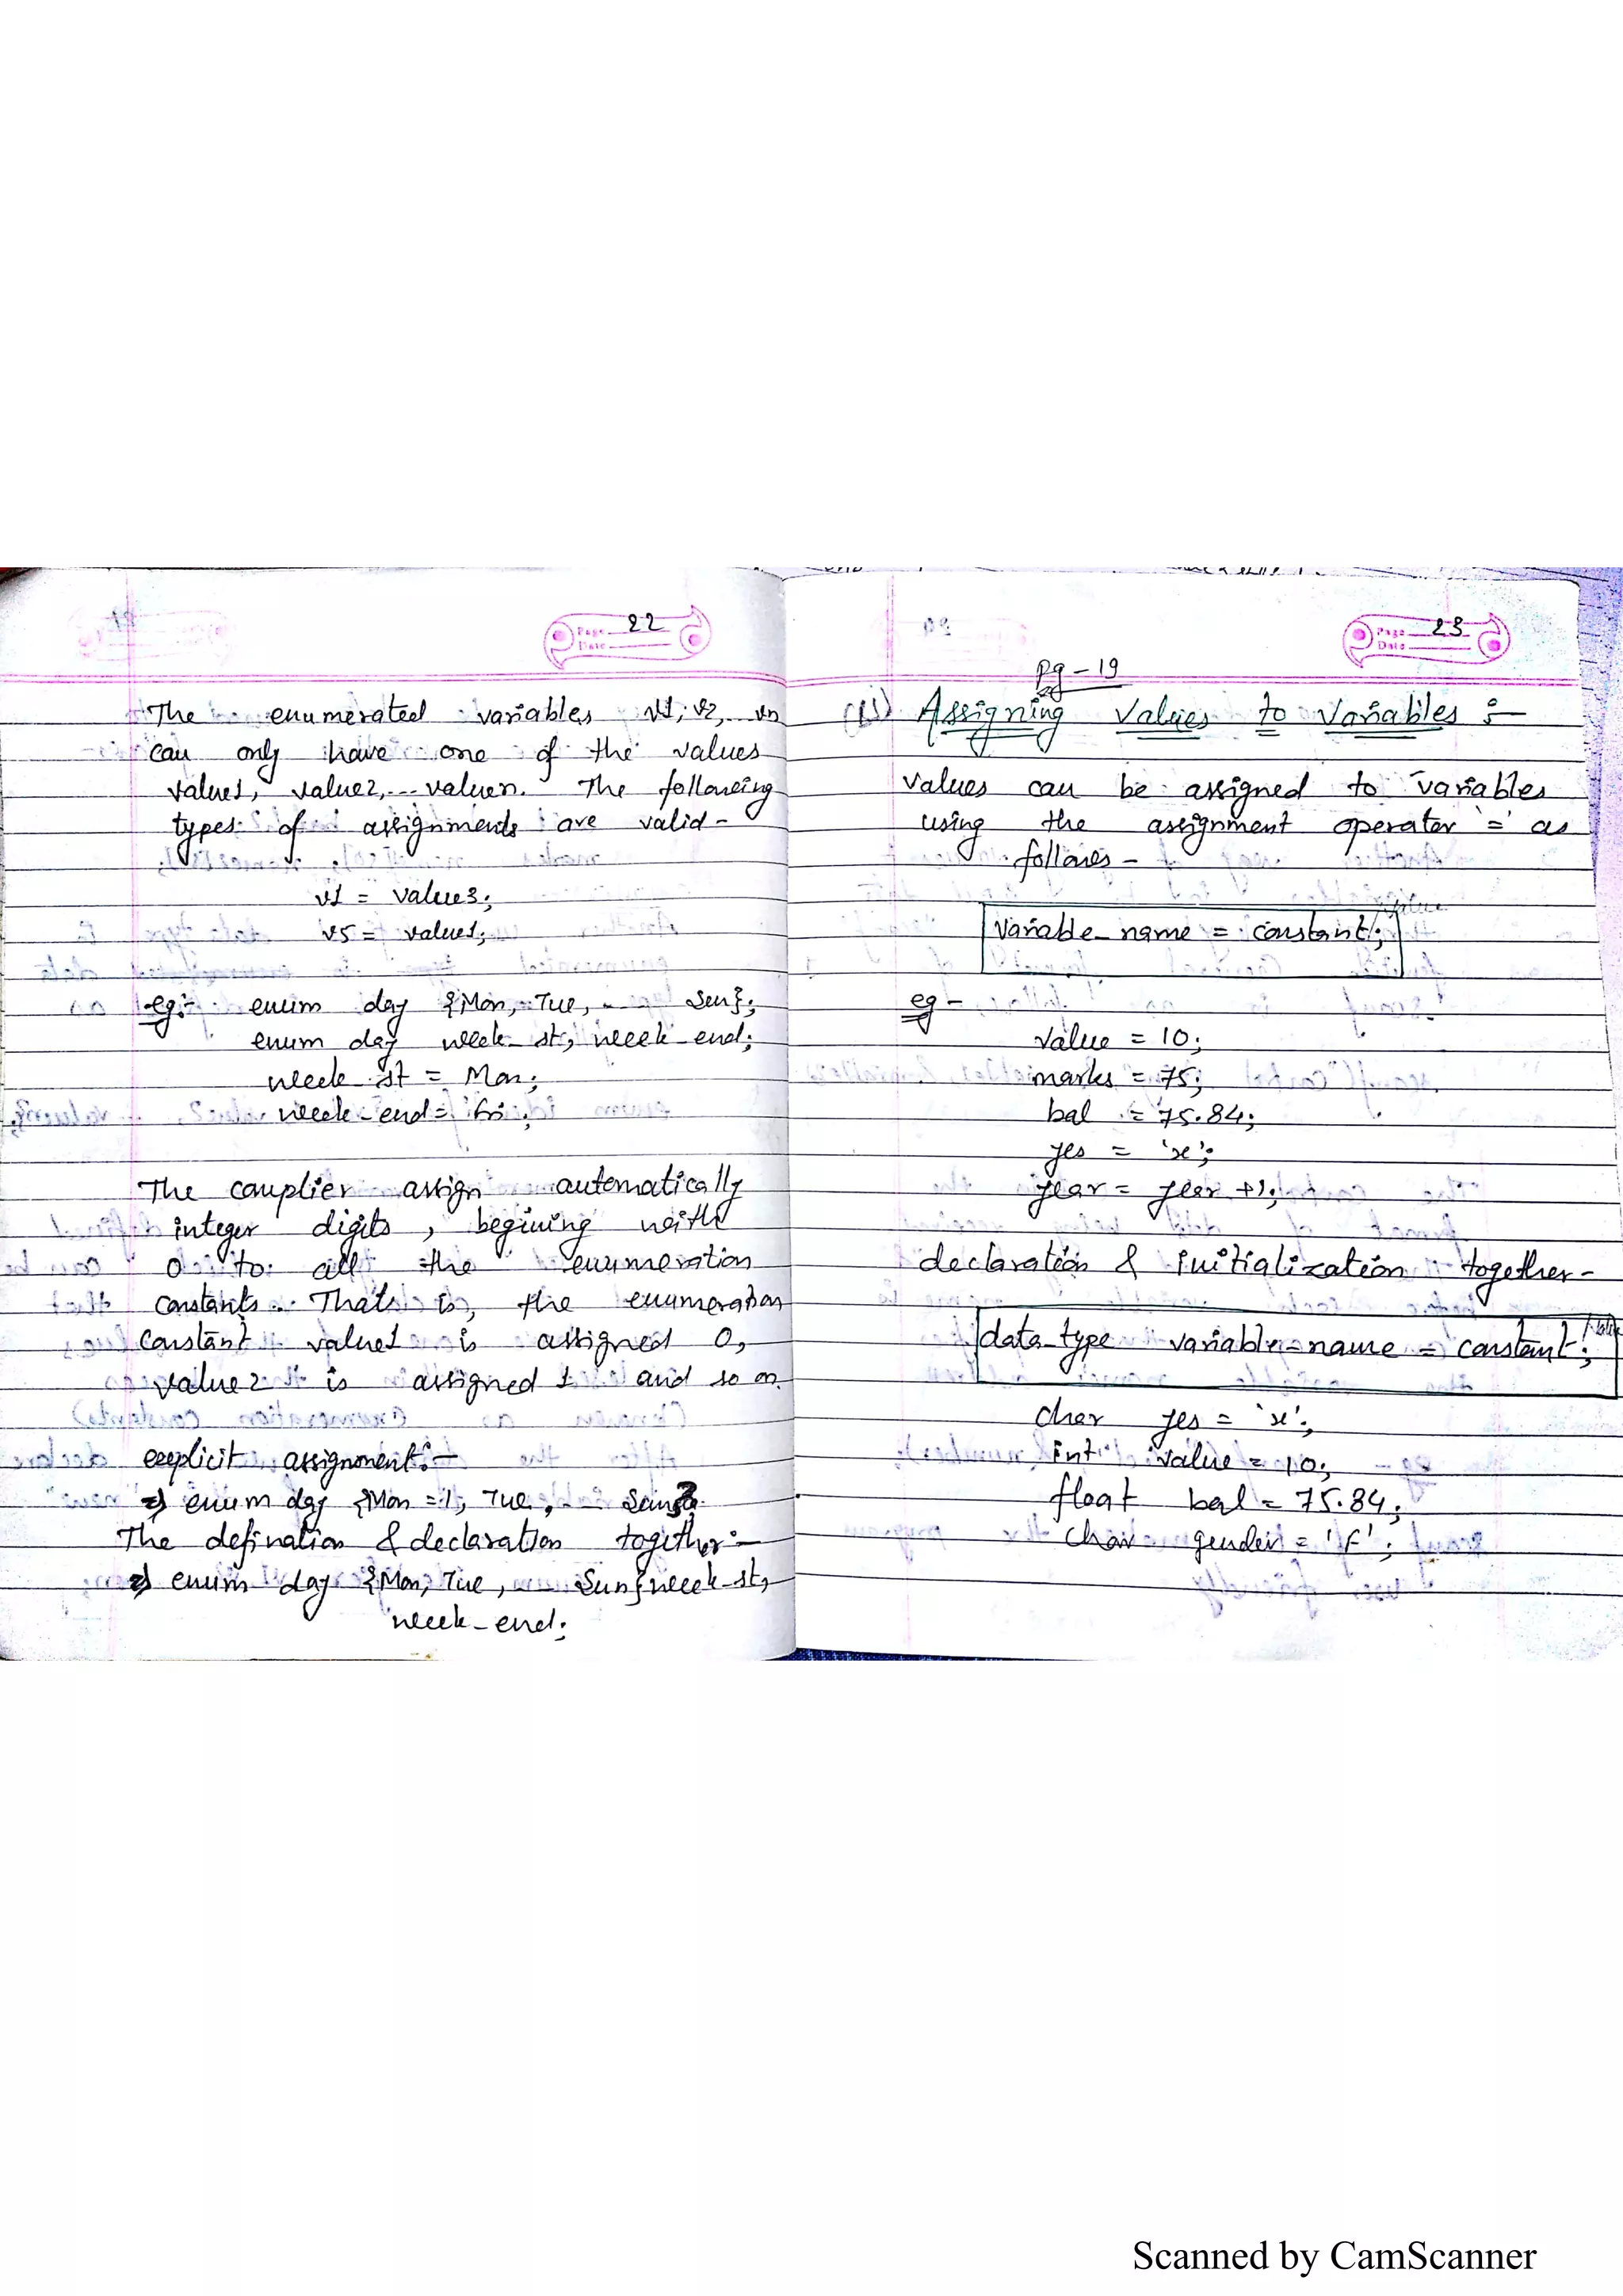 Page 22
Date
The enumerated variables v1, v2, vn
can only have one of the values
value1, value2,... valuen. The following
types of assignments are valid-
v1 = value3;
v5 = value1;
eg:- enum day {Mon, Tue, ... Sun};
enum day week_st, week_end;
week_st = Mon;
week_end = fri;
The complier assign automatically
integer digits, begining with
0 to all the enumeration
constants. That is, the enumeration
constant value1 is assigned 0,
value2 is assigned 1 and so on.
explicit assignment:-
⇒ enum day {Mon =1, Tue, ... Sun}
The defination & declaration together:-
⇒ enum day {Mon, Tue, ... Sun} week_st,
week_end;
Page 23
Date
Pg-19
Assigning Values to Variables :-
Values can be assigned to variables
using the assignment operator '=' as
follows -
Variable_name = constant;
eg -
value = 10;
marks = 75;
bal = 75.84;
yes = 'x';
year = year +1;
declaration & initialization together-
data_type variable_name = constant;
char yes = 'x';
int value = 10;
float bal = 75.84;
char gender = 'F';
Scanned by CamScanner